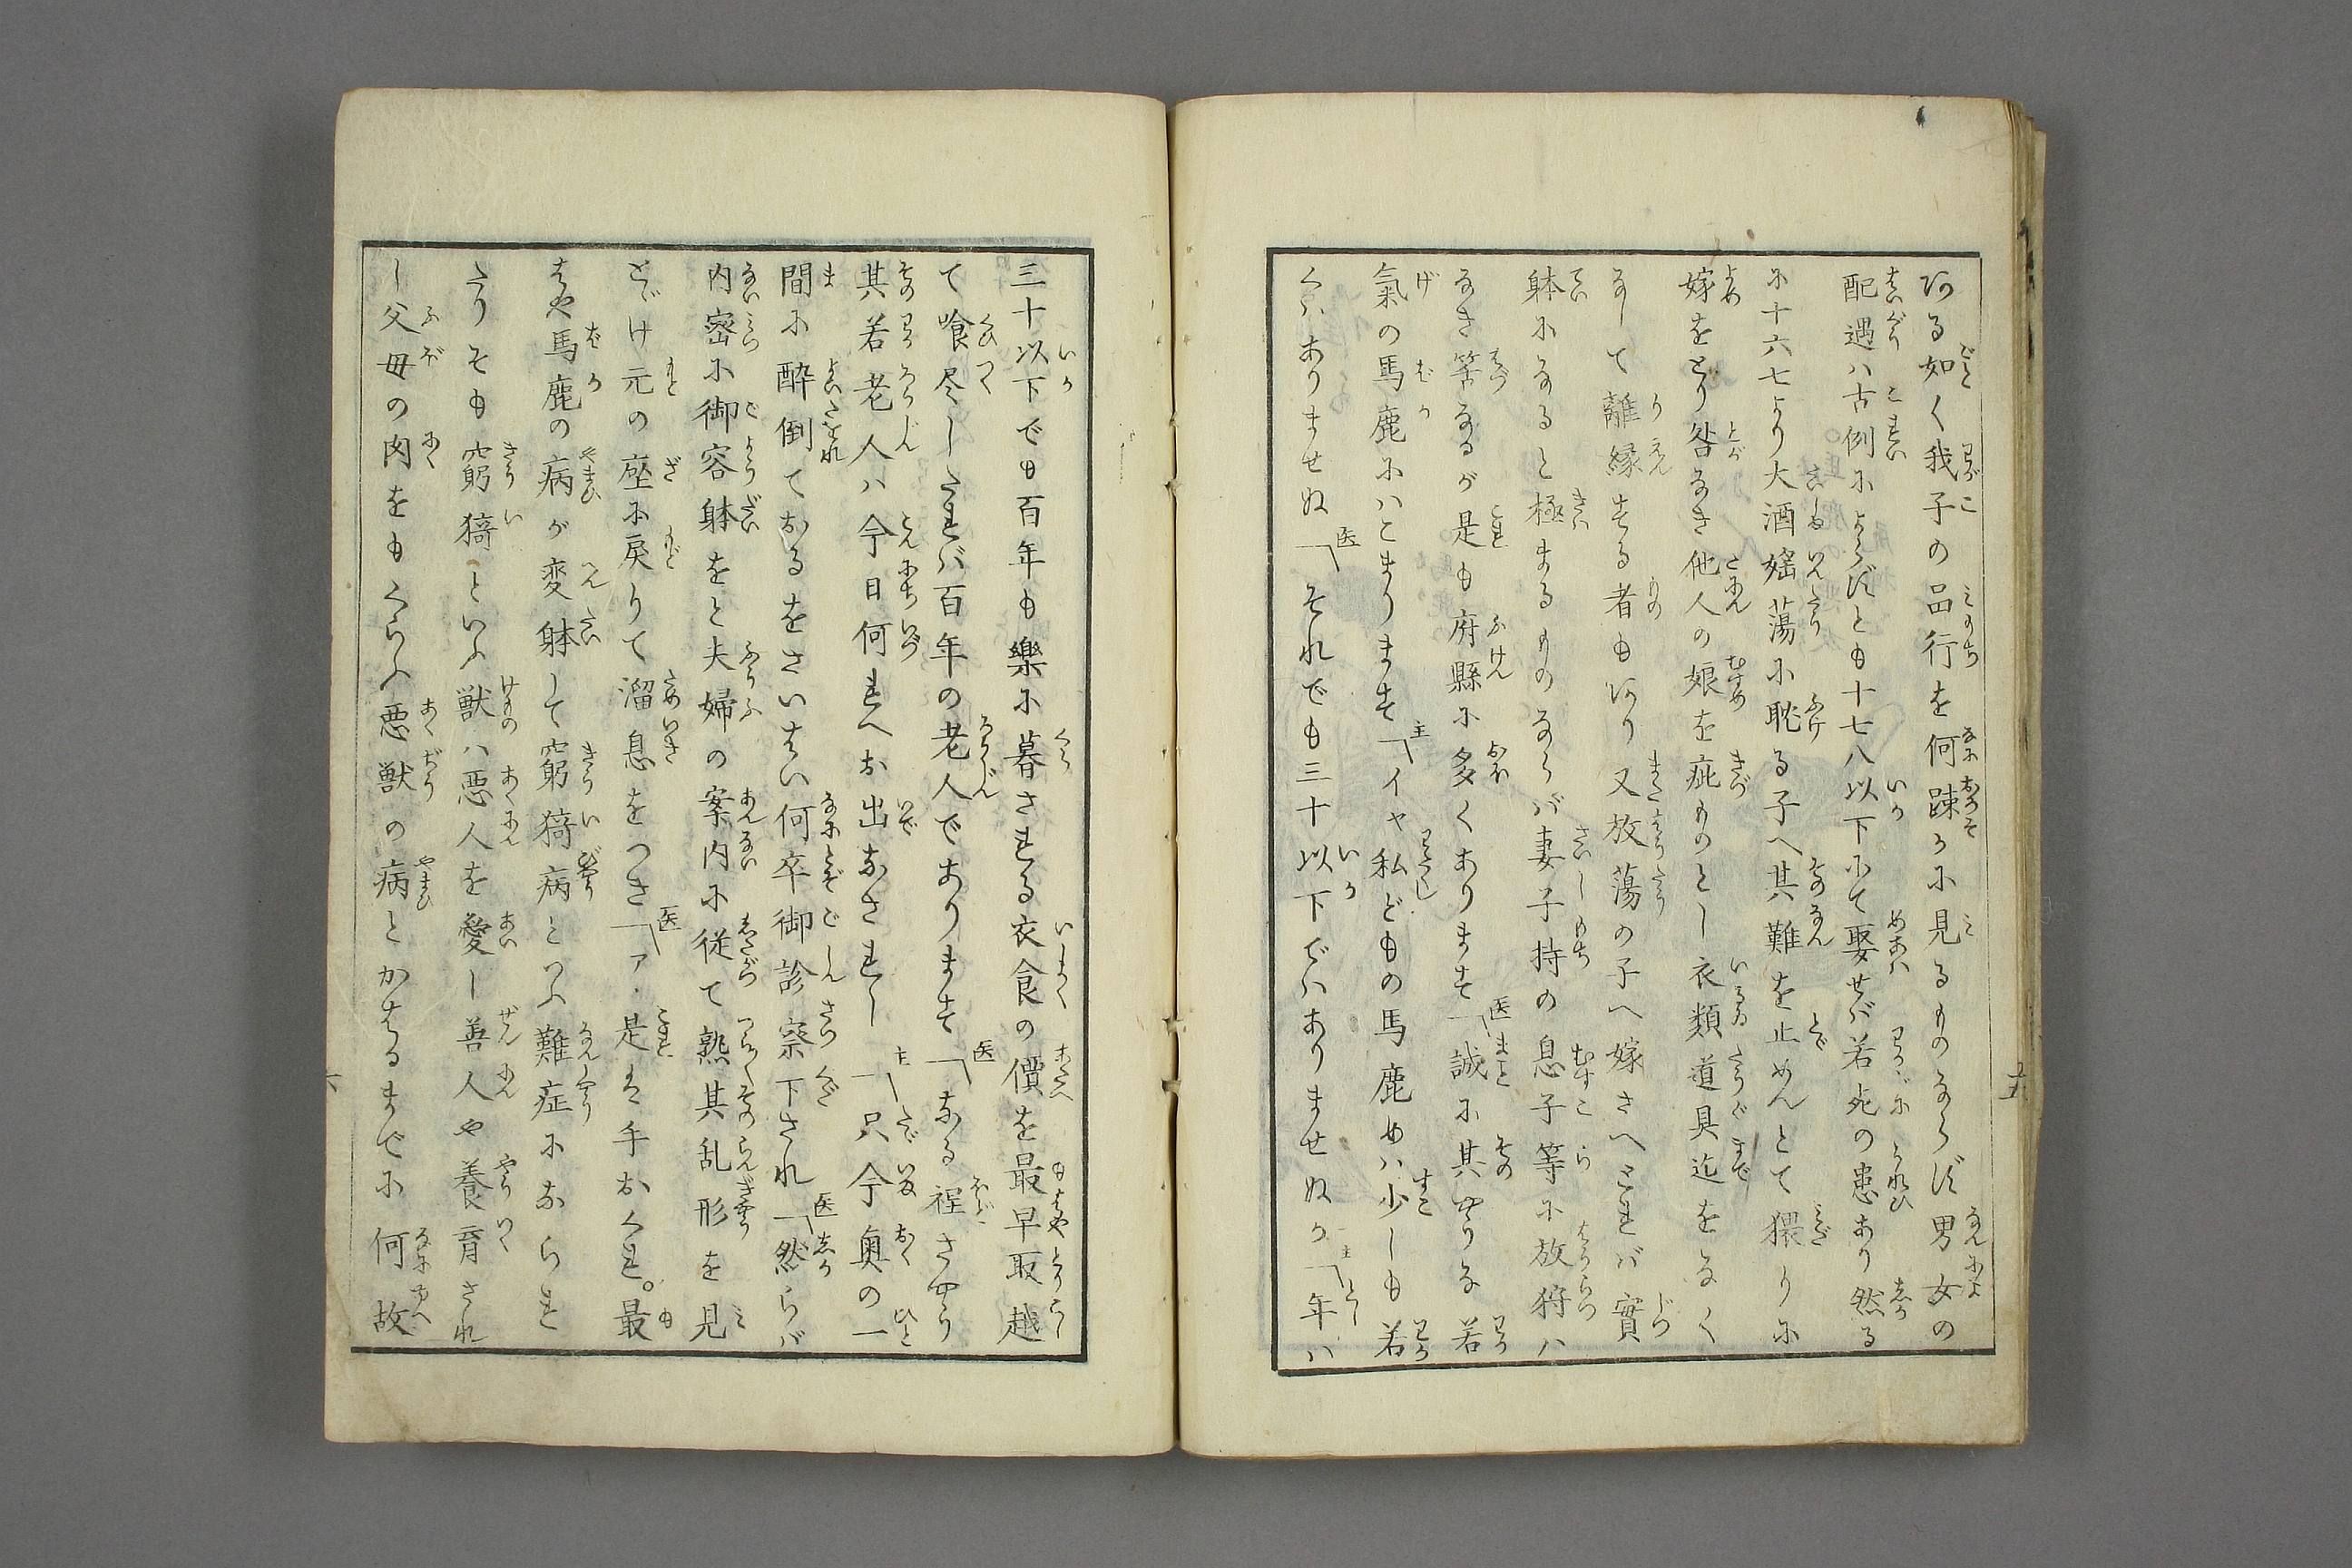 ある如く我子の品行を何踈かに見るものならず男女の
配遇ハ古例によらずとも十七八以下にて娶せバ若死の患あり然る
に十六七より大酒婬蕩に耽る子へ其難を止めんとて猥りに
嫁をとり咎なき他人の娘を疵ものとし衣類道具迄をなく
なして離縁する者もあり又放蕩の子へ嫁さへとれバ實
躰になると極まるものならバ妻子持の息子等に放狩ハ
なき筈なるが是も府縣に多くあります 医「誠に其やうな若
氣の馬鹿にハこまります 主「イヤ私どもの馬鹿めハ少しも若
くハありませぬ 医「それでも三十以下でハありませぬか 主「年ハ
三十以下でも百年も樂に暮される衣食の價を最早取越
て喰尽したれバ百年の老人であります 医「なる程さやう
其若老人ハ今日何れへお出なされし 主「只今奥の一
間に酔倒ておるをさいはい何卒御診察下され 医「然らバ
内密に御容躰をと夫婦の案内に従て熟其乱形を見
とゞけ元の座に戻りて溜息をつき 医「アヽ是は手おくれ。最
はや馬鹿の病が変躰して窮猗病とつふ難症になられ
たりそも窮猗といふ獣ハ悪人を愛し善人や養育され
し父母の肉をもくらふ悪獣の病とかはるまでに何故
五
六